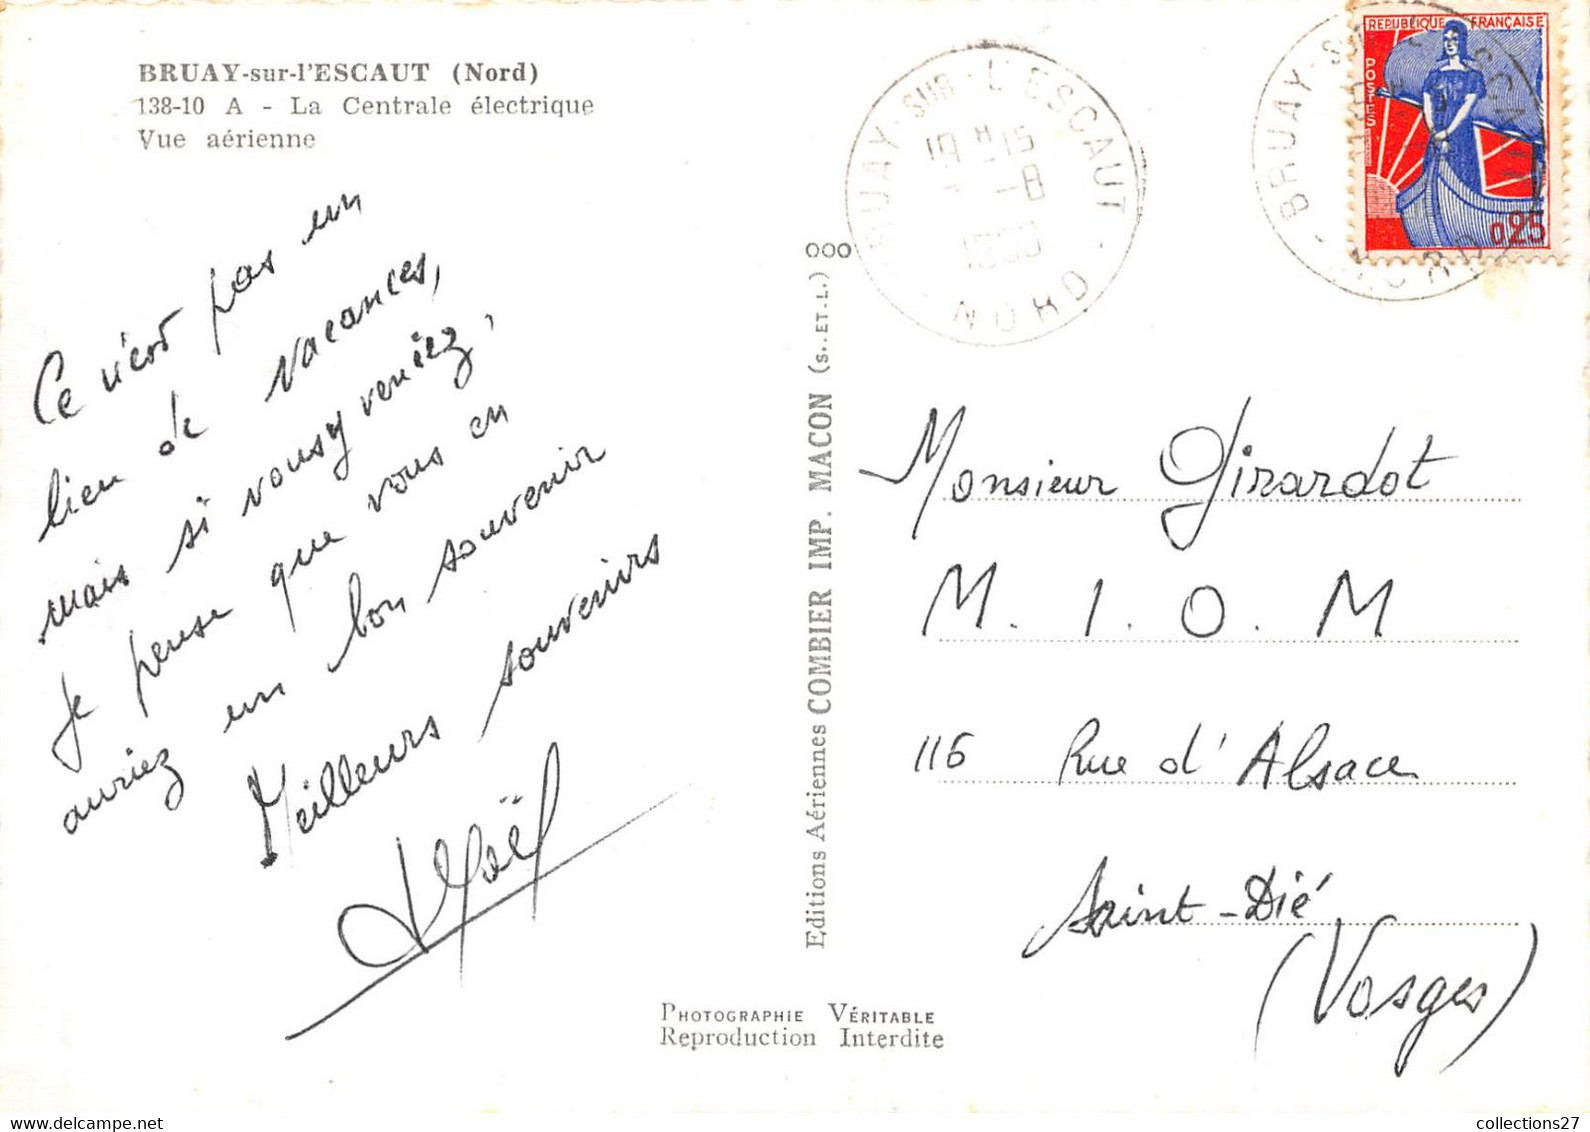 BRUAY-sur-l'ESCAUT (Nord)
138-10 A - La Centrale électrique
Vue aérienne
Ce n'est pas un
lieu de vacances,
mais si vous y veniez,
je pense que vous en
auriez un bon souvenir
Meilleurs souvenirs
Noël
Editions Aériennes COMBIER IMP. MACON (S.-ET-L.) 000
PHOTOGRAPHIE VÉRITABLE
Reproduction Interdite
BRUAY-SUR-L'ESCAUT
19 H 15
-8
NORD
BRUAY-SUR-L'ESCAUT
NORD
REPUBLIQUE FRANÇAISE
POSTES
0,25
Monsieur Girardot
M. I. O. M
116 Rue d'Alsace
Saint-Dié
(Vosges)
collections27